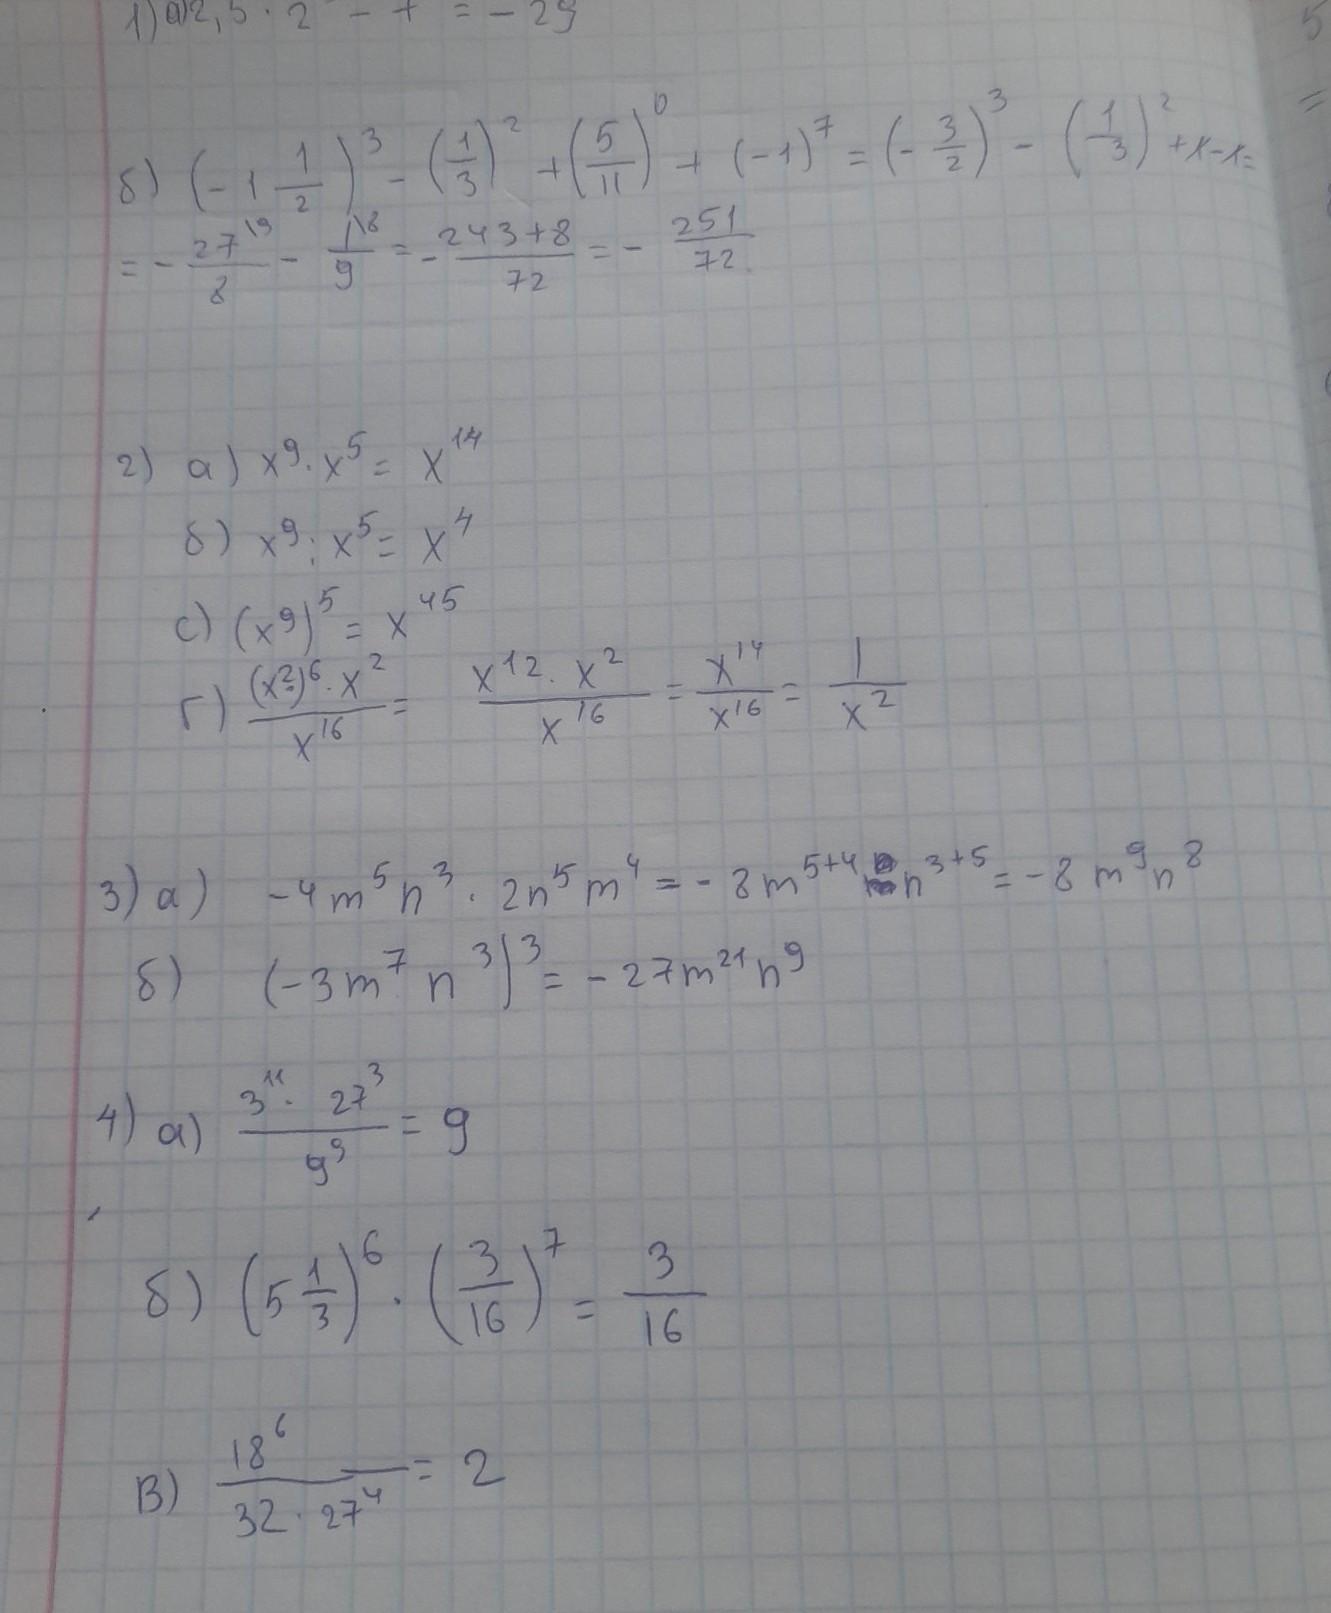 1) а) 2,5 · 2 - 7 = - 29
б) (-1 1/2)^3 - (1/3)^2 + (5/11)^0 + (-1)^7 = (- 3/2)^3 - (1/3)^2 + 1 - 1 =
= - 27^\9/8 - 1^\8/9 = - 243+8/72 = - 251/72
2) а) x^9 · x^5 = x^14
б) x^9 : x^5 = x^4
с) (x^9)^5 = x^45
г) (x^2)^6 · x^2/x^16 = x^12 · x^2/x^16 = x^14/x^16 = 1/x^2
3) а) -4m^5 n^3 · 2n^5 m^4 = - 8m^5+4 n^3+5 = -8 m^9 n^8
б) (-3m^7 n^3)^3 = - 27m^21 n^9
4) а) 3^11 · 27^3/9^9 = 9
б) (5 1/3)^6 · (3/16)^7 = 3/16
В) 18^6/32 · 27^4 = 2
5
=